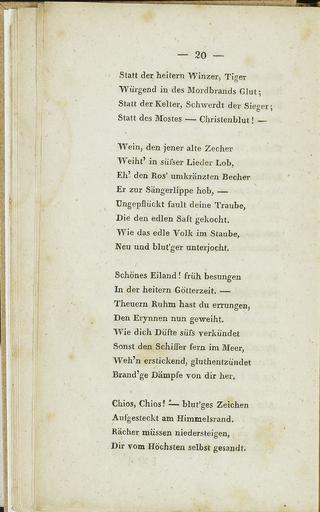 — 20 —
Statt der heitern Winzer, Tiger
Würgend in des Mordbrands Glut;
Statt der Kelter, Schwerdt der Sieger;
Statt des Mostes — Christenblut! —
Wein, den jener alte Zecher
Weiht' in süfser Lieder Lob,
Eh' den Ros' umkränzten Becher
Er zur Sängerlippe hob, —
Ungepflückt fault deine Traube,
Die den edlen Saft gekocht.
Wie das edle Volk im Staube,
Neu und blut'ger unterjocht.
Schönes Eiland! früh besungen
In der heitern Götterzeit. —
Theuern Ruhm hast du errungen,
Den Erynnen nun geweiht.
Wie dich Düfte süfs verkündet
Sonst den Schiffer fern im Meer,
Weh'n erstickend, gluthentzündet
Brand'ge Dämpfe von dir her.
Chios, Chios! — blut'ges Zeichen
Aufgesteckt am Himmelsrand.
Rächer müssen niedersteigen,
Dir vom Höchsten selbst gesandt.